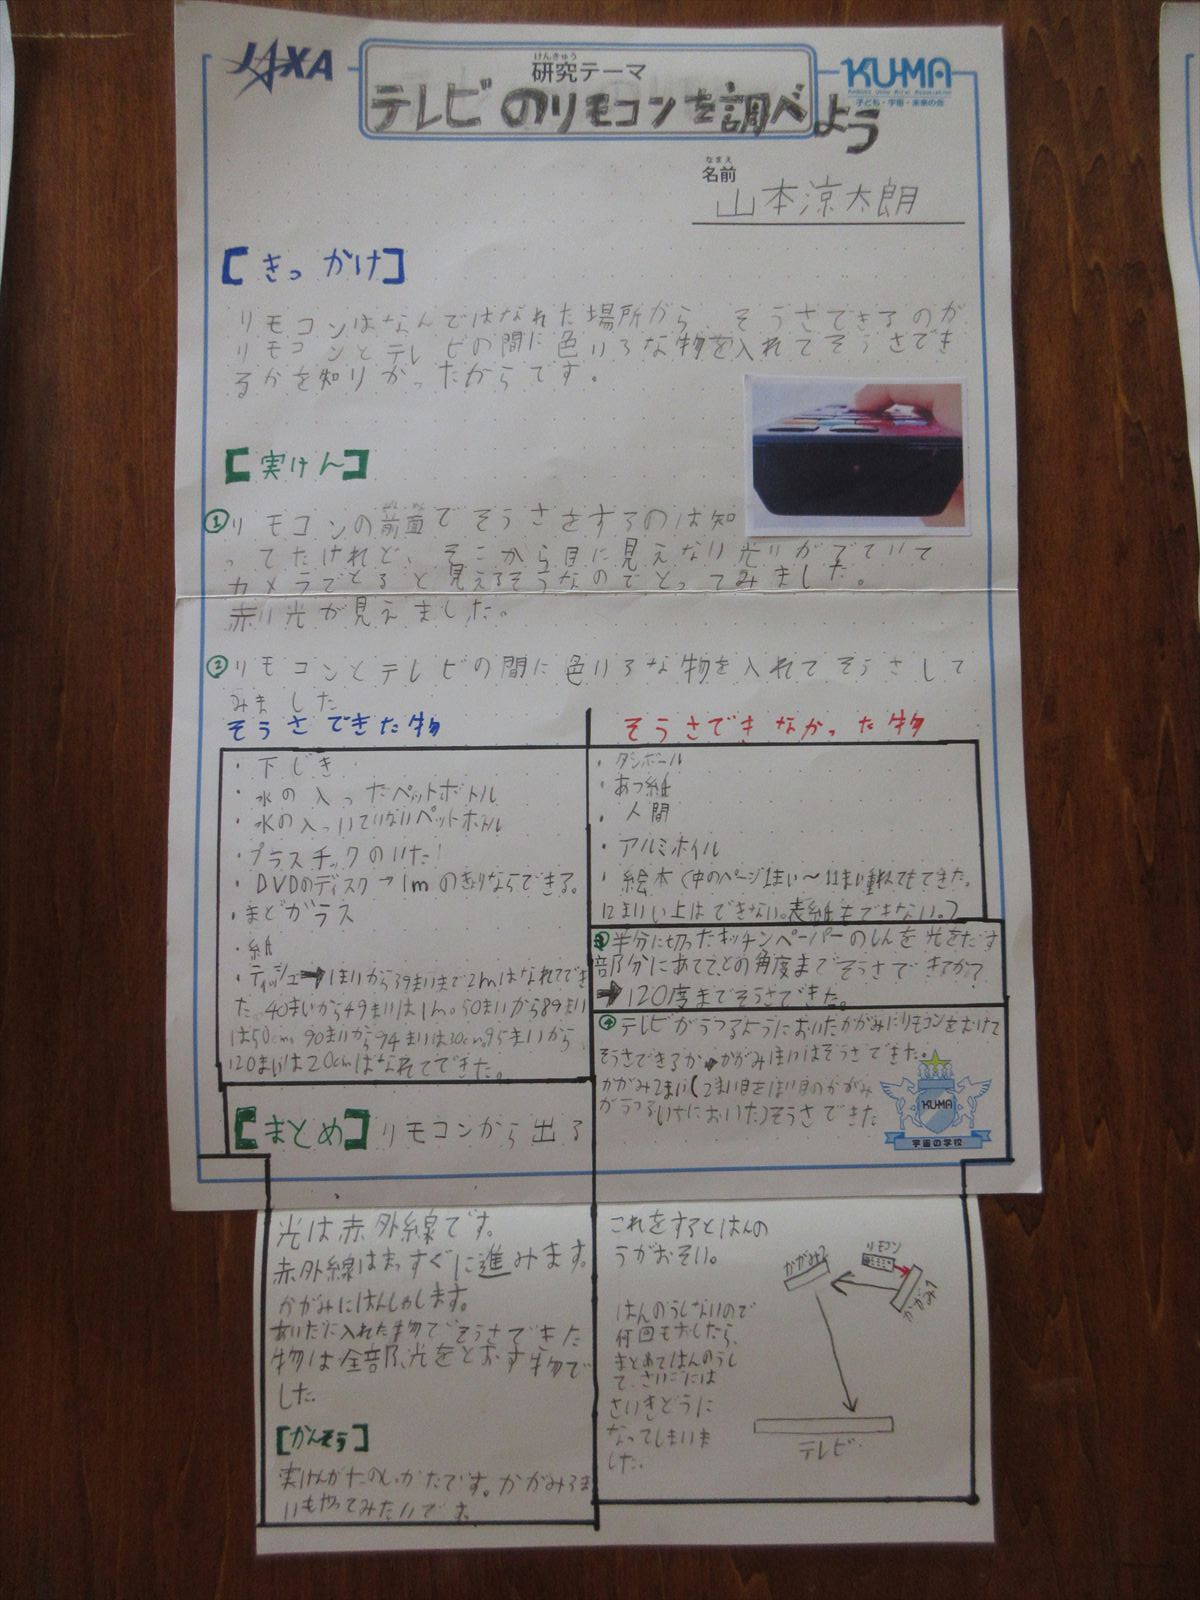 JAXA
けんきゅう
研究テーマ
KU-MA
子ども・宇宙・未来の会
テレビのリモコンを調べよう
なまえ
名前
山本涼太朗
【きっかけ】
リモコンはなんではなれた場所から、そうさできるのか
リモコンとテレビの間に色いろな物を入れてそうさでき
るかを知りかったからです。
【実けん】
①リモコンの前面でそうさをするのは知
ってたけれど、そこから目に見えない光りがでていて
カメラでとると見えるそうなのでとってみました。
赤い光が見えました。
②リモコンとテレビの間に色いろな物を入れてそうさして
みました
そうさできた物
・下じき
・水の入ったペットボトル
・水の入っいていないペットボトル
・プラスチックのいた
・DVDのディスク→1mのきょりならできる。
・まどガラス
・紙
・ティッシュ➡1まいから39まいまで2mはなれてでき
た。40まいから49まいは1m。50まいから89まい
は50cm。90まいから94まいは30cm。95まいから
120まいは20cmはなれてできた。
そうさできなかった物
・ダンボール
・あつ紙
・人間
・アルミホイル
・絵本(中のページ1まい〜11まい重ねてもできた。
12まいい上はできない。表紙もできない。)
③半分に切ったキッチンペーパーのしんを光をだす
部分にあててどの角度までそうさできるか?
➡120度までそうさできた。
④テレビがうつるようにおいたかがみにリモコンをむけて
そうさできるか➡かがみ1まいはそうさできた。
かがみ2まい(2まい目を1まい目のかがみ
がうつるいちにおいた)そうさできた
KU-MA
宇宙の学校
【まとめ】リモコンから出る
光は赤外線です。
赤外線はまっすぐに進みます。
かがみにはんしゃします。
あいだに入れた物でそうさできた
物は全部、光をとおす物で
した。
【かんそう】
実けんがたのしかたです。かがみ3ま
いもやってみたいです。
これをするとはんの
うがおそい。
はんのうしないので
何回もおしたら、
まとめてはんのうし
て、さいごには
さいきどうに
なってしまいま
した。
リモコン
かがみ2
かがみ1
テレビ